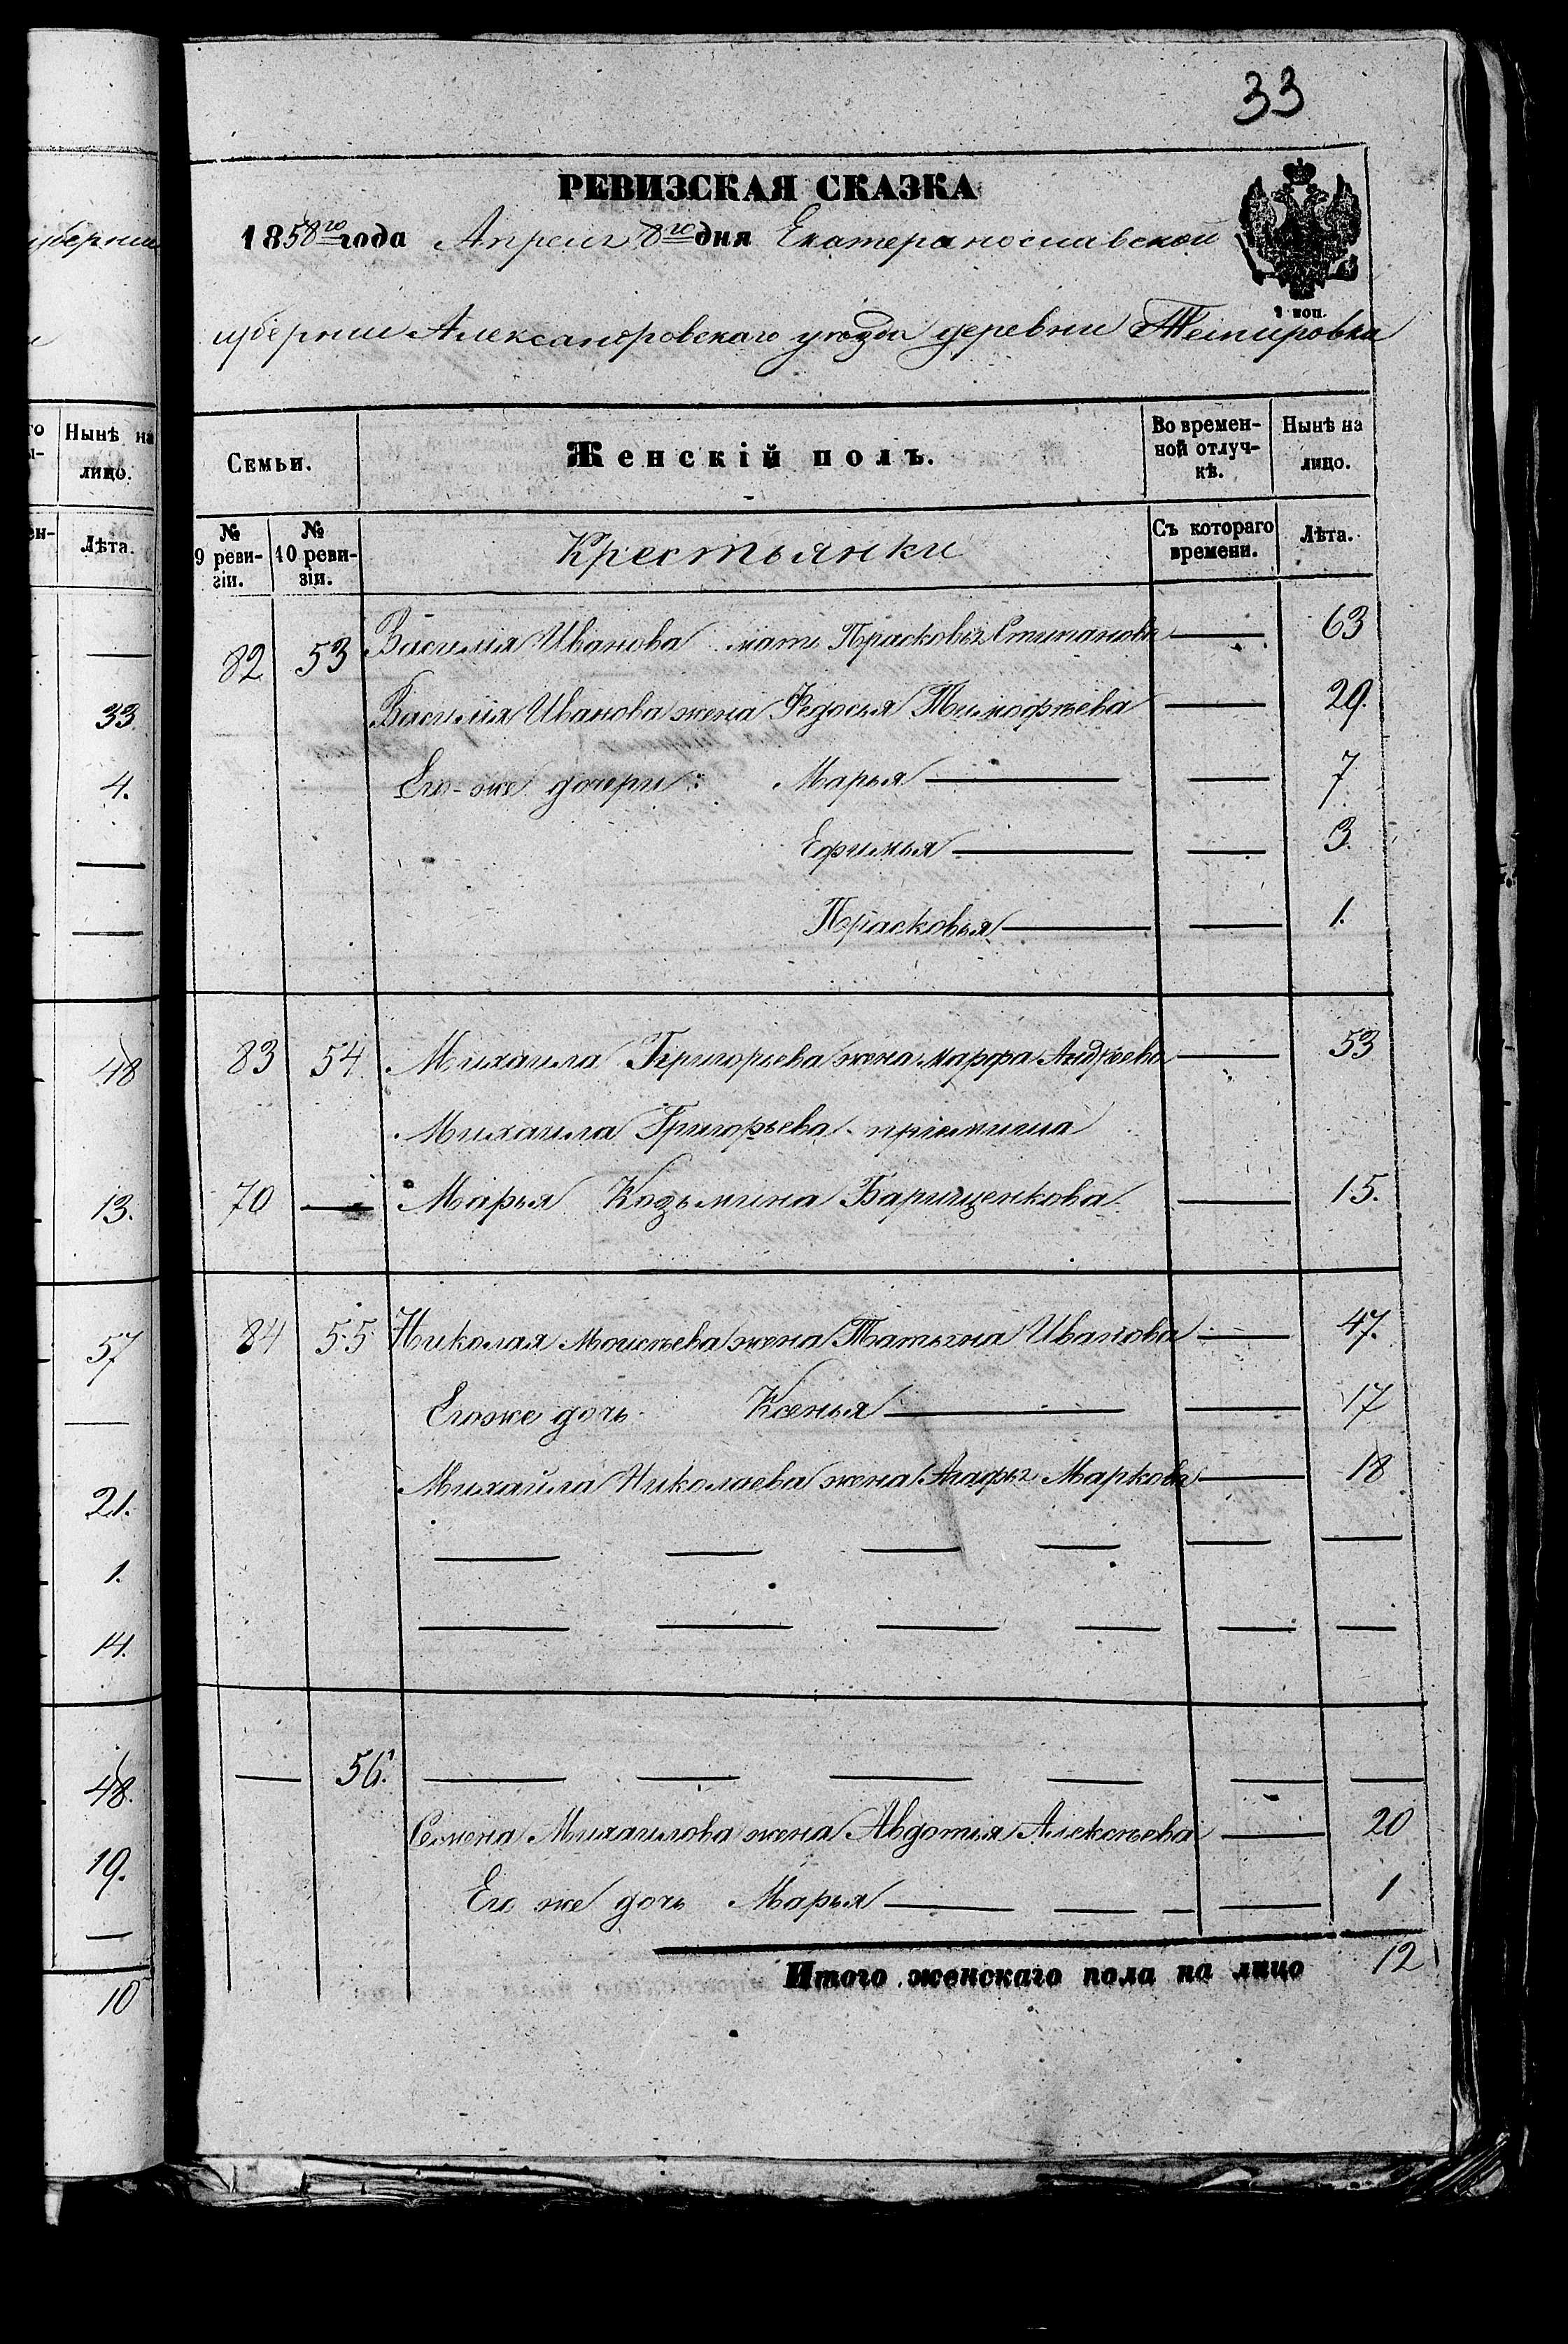 уберніи
го Нынѣ на
ы- лицо.
ен- Лѣта.
33.
4.
48
13.
57
21.
1.
14.
48.
19.
10
33
РЕВИЗСКАЯ СКАЗКА
1858го года Апреля 8го дня Екатеринославской
1 коп.
губерніи Александровскаго уѣзда деревни
Семьи. Женскій полъ. Во времен-ной отлуч-кѣ. Нынѣ на лицо.
№ 9 реви-зіи. № 10 реви-зіи. Крестьянки Съ котораго времени. Лѣта.
82 53 Василія Иванова мать Прасковья Стипанова — 63
Василія Иванова жена Федосья Тимофѣева — 29.
Его-же дочери: Марья — — 7
Ефимья — — 3.
Прасковья — — 1.
83 54 Михаила Григорьева жена марфа Андрѣева — 53
Михаила Григорьева пріемыша
70 — Марья Козьмина Барищенкова — 15.
84 55 Николая Моисѣева жена Татьяна Иванова — 47.
Егоже дочь Ксенья — — 17
Михайла Николаева жена Агафья Маркова — 18
— — — — — —
— — — — — —
— 56. — — — — — —
Семена Михаилова жена Авдотья Алексѣева — 20
Его же дочь Марья — — — — 1
Итого женскаго пола на лицо 12